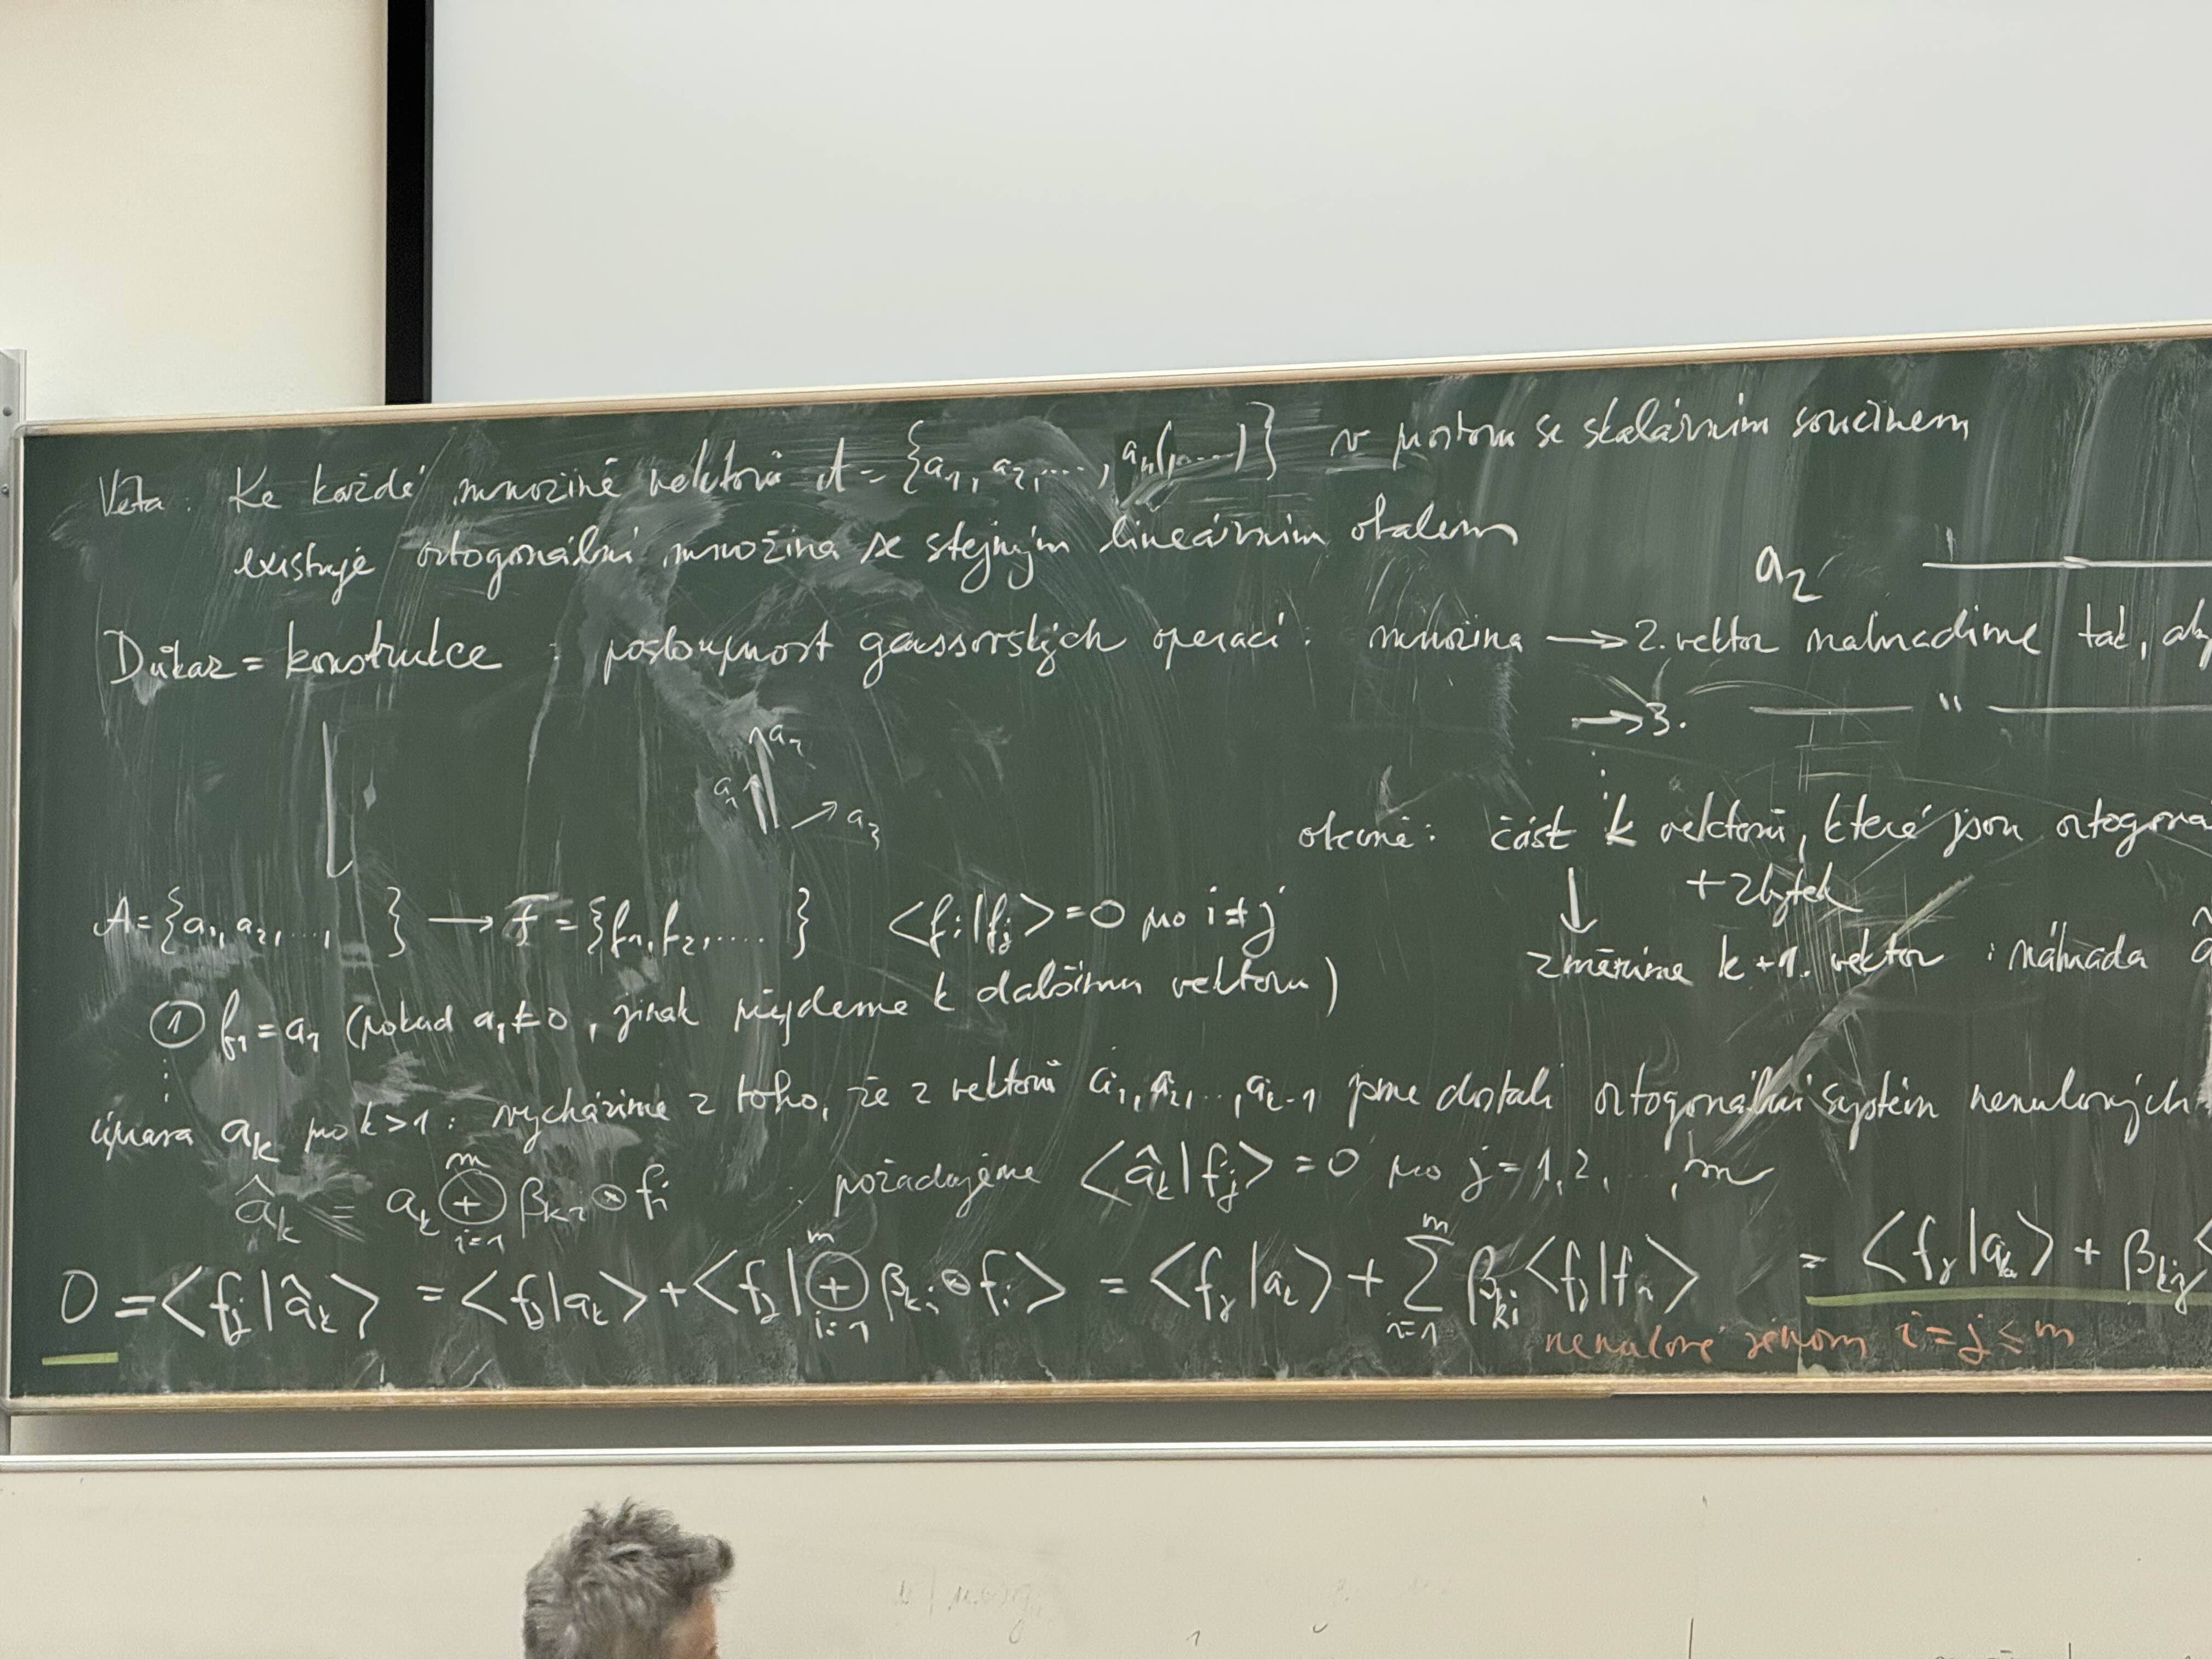 Věta: Ke každé množině vektorů A = {a₁, a₂, ..., aₙ(, ...)} v prostoru se skalárním součinem
existuje ortogonální množina se stejným lineárním obalem
a₂
Důkaz = konstrukce : posloupnost gaussovských operací: množina → 2. vektor nahradíme tak, ab
→ 3. — " —
a₂
a₁
a₃
obecně: část k vektorů, které jsou ortogona
+ zbytek
↓
změníme k+1. vektor : náhrada â
A = {a₁, a₂, ..., } → F = {f₁, f₂, ....} <fᵢ|fⱼ> = 0 pro i ≠ j
① f₁ = a₁ (pokud a₁ ≠ 0, jinak přejdeme k dalšímu vektoru)
⋮
úprava aₖ pro k > 1: vycházíme z toho, že z vektorů a₁, a₂, .., aₖ₋₁ jsme dostali ortogonální systém nenulových
âₖ = aₖ ⊕ᵢ₌₁ᵐ βₖᵢ ⊙ fᵢ : požadujeme <âₖ|fⱼ> = 0 pro j = 1, 2, ..., m
0 = <fⱼ|âₖ> = <fⱼ|aₖ> + <fⱼ| ⊕ᵢ₌₁ᵐ βₖᵢ ⊙ fᵢ> = <fⱼ|aₖ> + Σᵢ₌₁ᵐ βₖᵢ <fⱼ|fᵢ> = <fⱼ|aₖ> + βₖⱼ <
nenulové i = j ≤ m